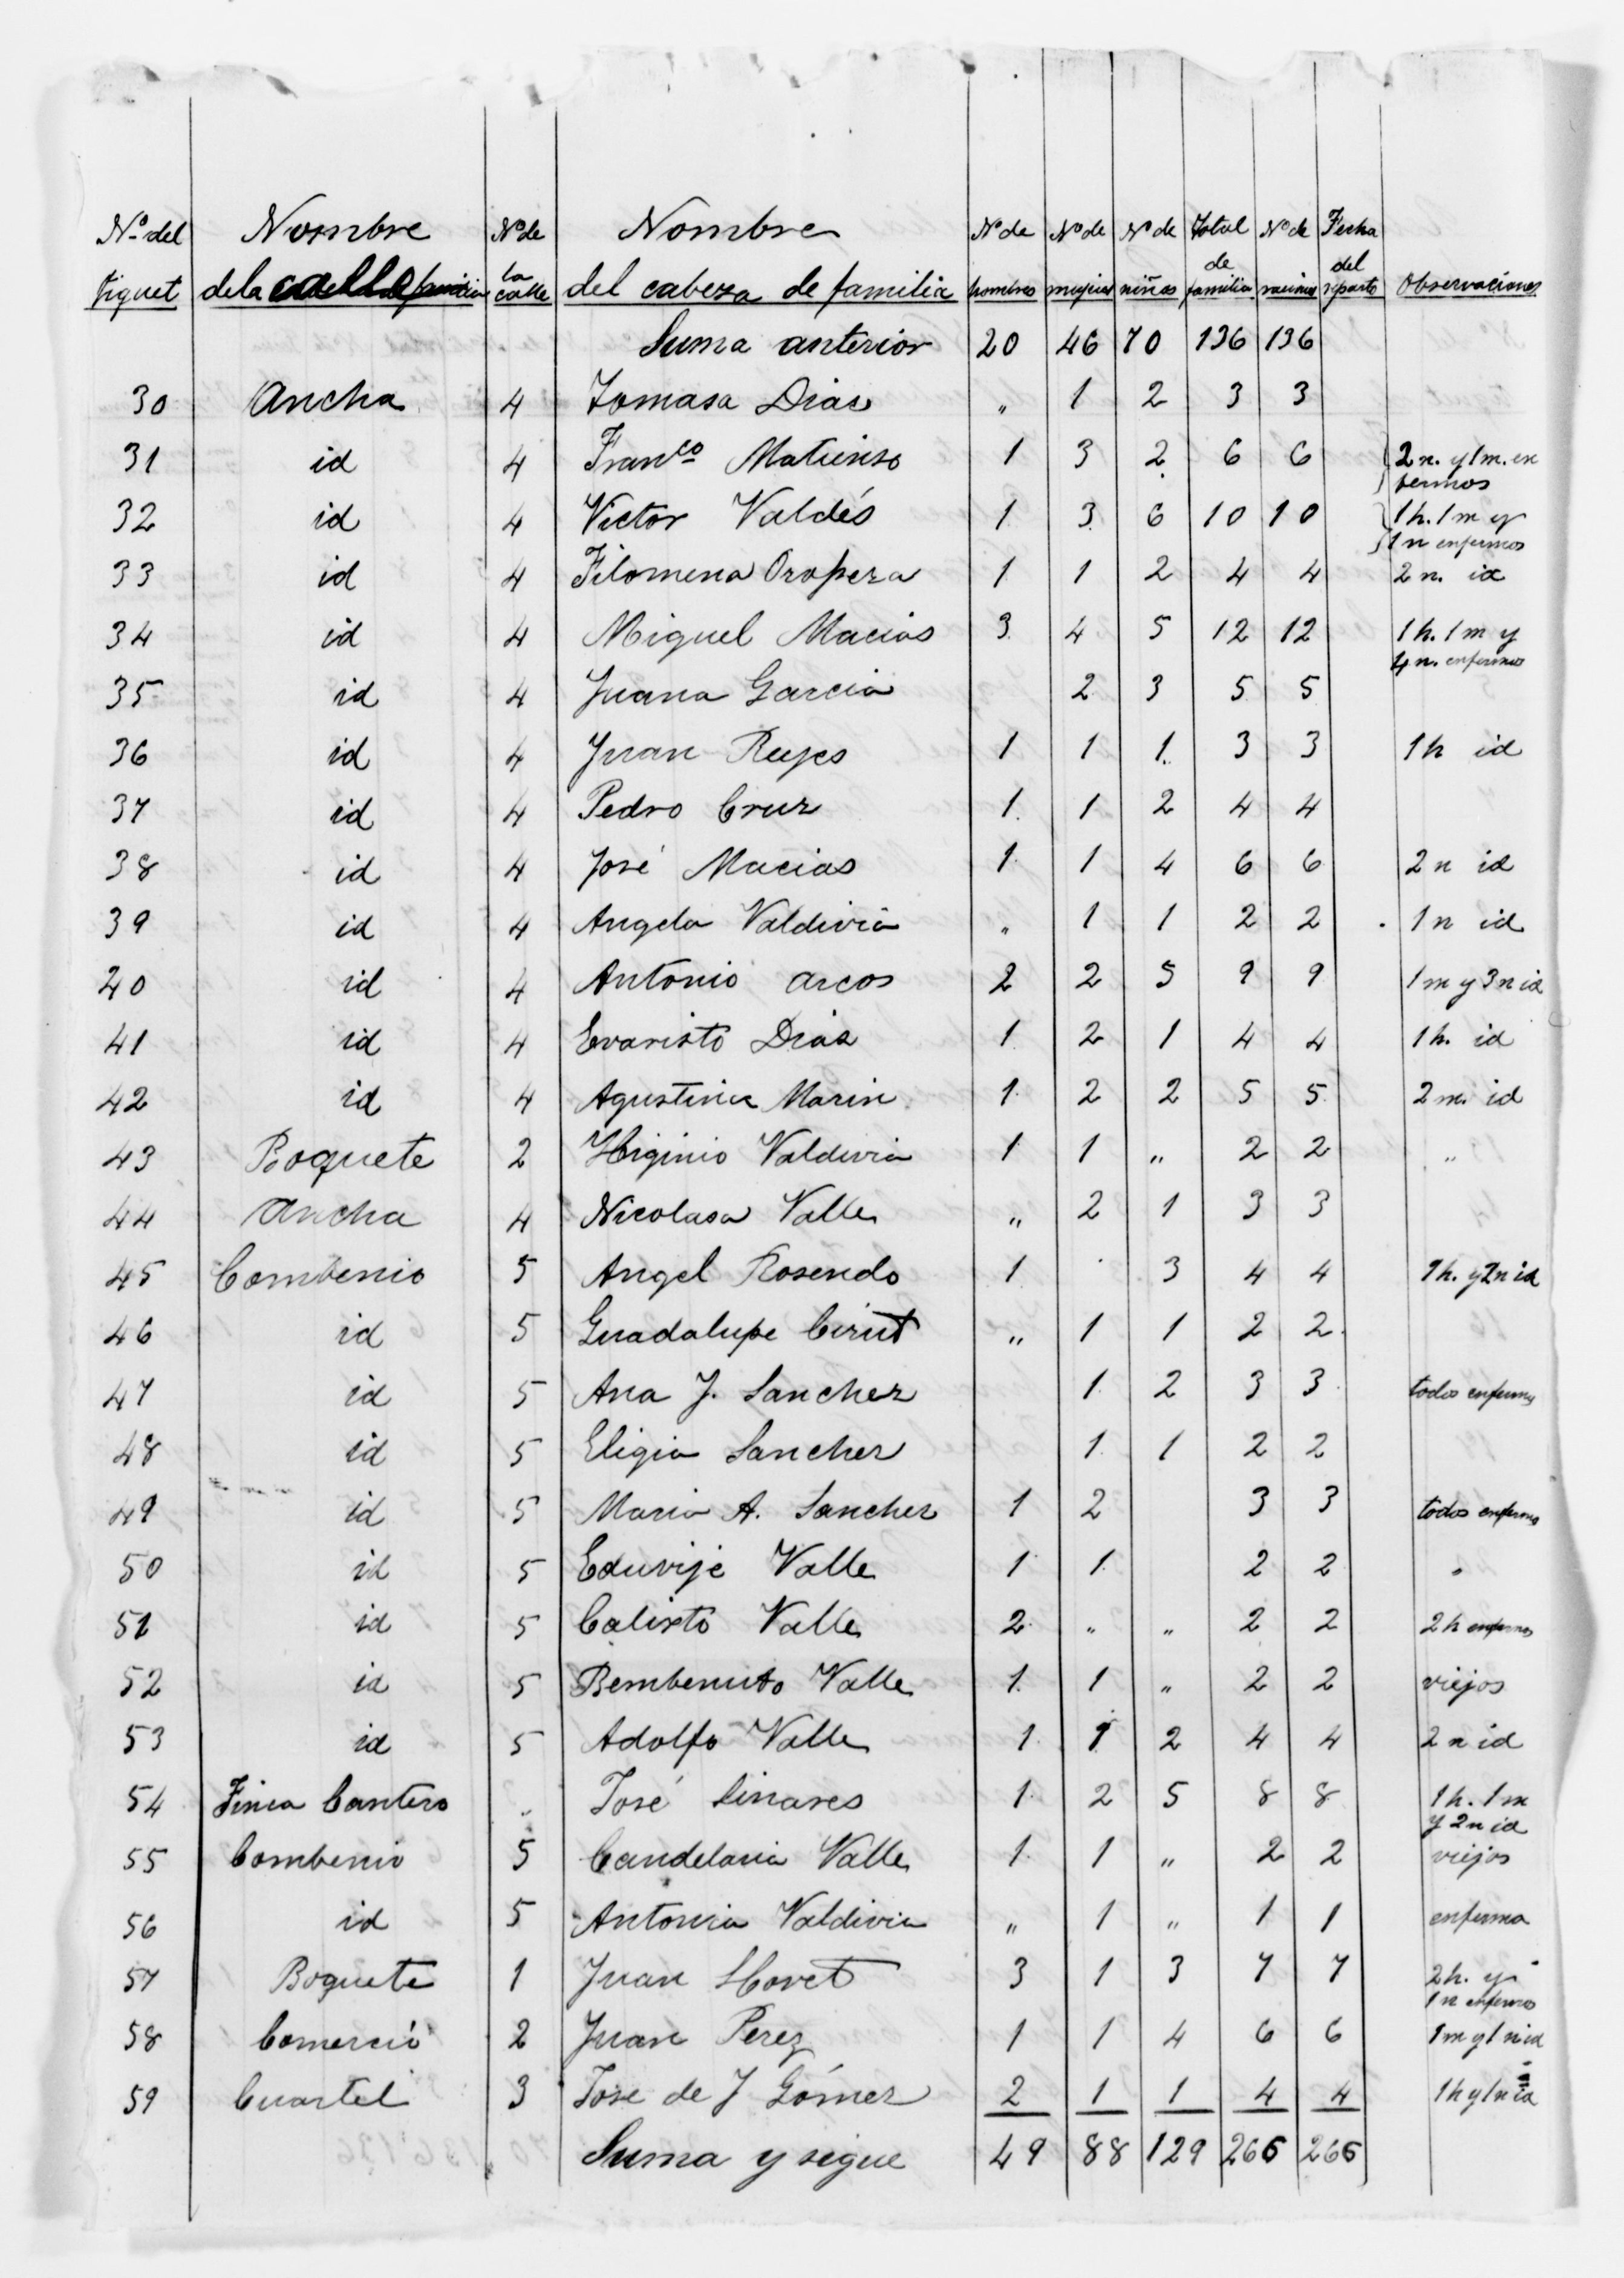 Nº del Nombre Nº de Nombre Nº de Nº de Nº de Total Nº de Fecha
de del
tiquet de la calle la calle del cabeza de familia hombres mujeres niños familia racines reparto Observaciones
Suma anterior 20 46 70 136 136
30 Ancha 4 Tomasa Dias " 1 2 3 3
31 id 4 Franco Matienso 1 3 2 6 6 2 n. y 1 m. en
fermos
32 id 4 Victor Valdés 1 3 6 10 10 1 h. 1 m y
1 n enfermos
33 id 4 Filomena Oropeza 1 1 2 4 4 2 n. id
34 id 4 Miguel Macias 3 4 5 12 12 1 h. 1 m y
4 n. enfermos
35 id 4 Juana Garcia 2 3 5 5
36 id 4 Juan Reyes 1 1 1 3 3 1 h id
37 id 4 Pedro Cruz 1 1 2 4 4
38 id 4 José Macias 1 1 4 6 6 2 n id
39 id 4 Angela Valdivia " 1 1 2 2 1 n id
40 id 4 Antonio Arcos 2 2 5 9 9 1 m y 3 n id
41 id 4 Evaristo Dias 1 2 1 4 4 1 h. id
42 id 4 Agustina Marin 1 2 2 5 5 2 m. id
43 Boquete 2 Higinio Valdivia 1 1 " 2 2 "
44 Ancha 4 Nicolasa Valle " 2 1 3 3
45 Combenio 5 Angel Rosendo 1 3 4 4 1 h. y 2 n id
46 id 5 Guadalupe Cirut " 1 1 2 2
47 id 5 Ana J. Sanchez 1 2 3 3 todos enfermos
48 id 5 Eligia Sanchez 1 1 2 2
49 id 5 Maria A. Sanchez 1 2 3 3 todos enfermos
50 id 5 Eduvije Valle 1 1 2 2 "
51 id 5 Calixto Valle 2 " " 2 2 2 h enfermos
52 id 5 Bembenuto Valle 1 1 " 2 2 viejos
53 id 5 Adolfo Valle 1 1 2 4 4 2 n id
54 Finca Cantero " José Linares 1 2 5 8 8 1 h. 1 m
y 2 n id
55 Combenio 5 Candelaria Valle 1 1 " 2 2 viejos
56 id 5 Antonia Valdivia " 1 " 1 1 enferma
57 Boquete 1 Juan Llovet 3 1 3 7 7 2 h. y
1 n enfermos
58 Comercio 2 Juan Perez 1 1 4 6 6 1 m y 1 n id
59 Cuartel 3 Jose de J Gómez 2 1 1 4 4 1 h y 1 n id
Suma y sigue 49 88 129 266 266